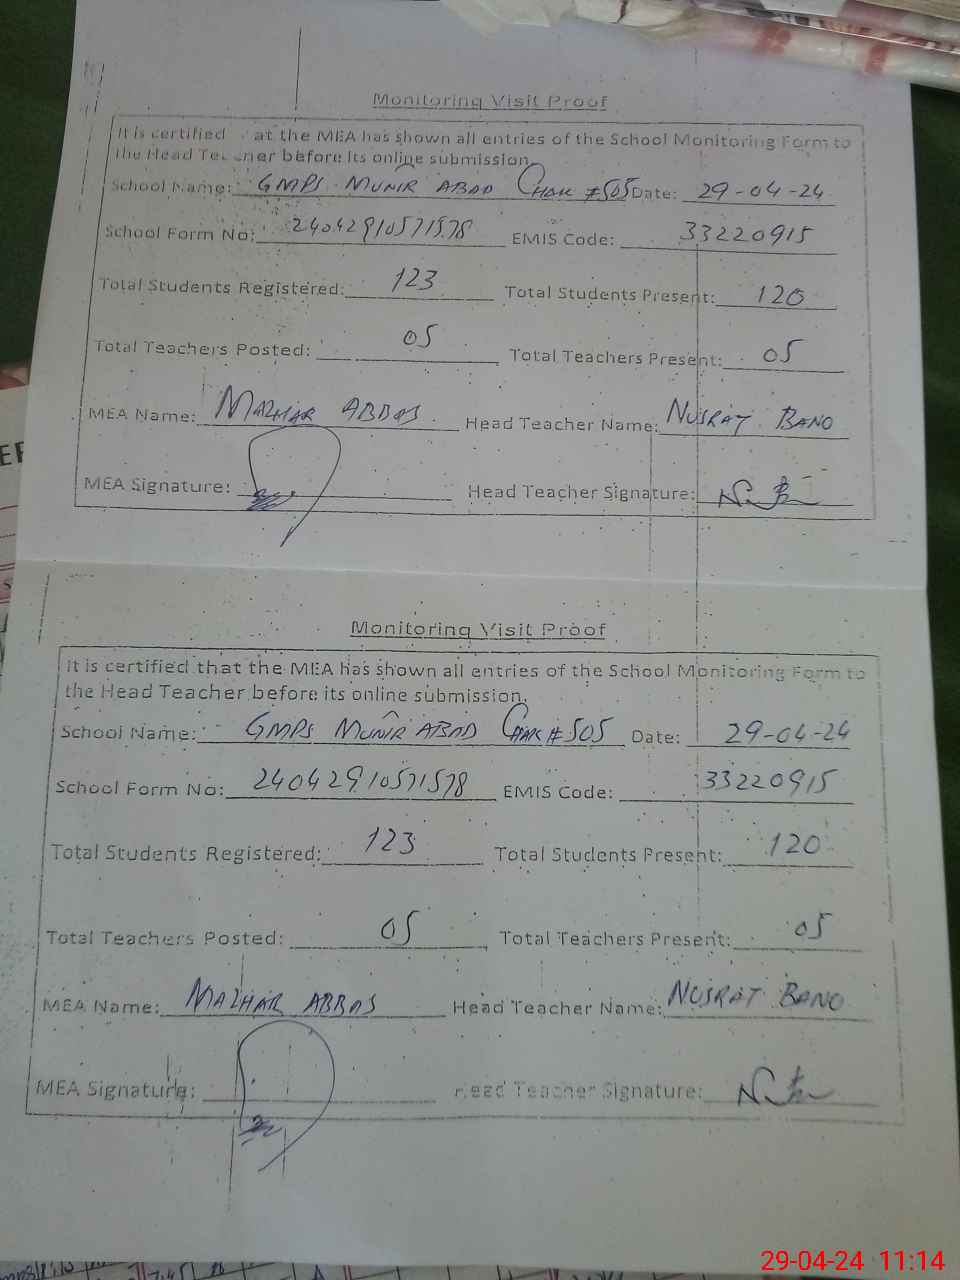 Monitoring Visit Proof
It is certified at the MEA has shown all entries of the School Monitoring Form to
the Head Teacher before its online submission.
School Name: GMPS MUNIR ABAD CHAK #505 Date: 29-04-24
School Form No: 24042910571578 EMIS Code: 33220915
Total Students Registered: 123 Total Students Present: 120
Total Teachers Posted: 05 Total Teachers Present: 05
MEA Name: MAZHAR ABBAS Head Teacher Name: NUSRAT BANO
MEA Signature: Head Teacher Signature:
Monitoring Visit Proof
It is certified that the MEA has shown all entries of the School Monitoring Form to
the Head Teacher before its online submission.
School Name: GMPS MUNIR ABAD CHAK # 505 Date: 29-04-24
School Form No: 24042910571578 EMIS Code: 33220915
Total Students Registered: 123 Total Students Present: 120
Total Teachers Posted: 05 Total Teachers Present: 05
MEA Name: MAZHAR ABBAS Head Teacher Name: NUSRAT BANO
MEA Signature: Head Teacher Signature:
29-04-24 11:14